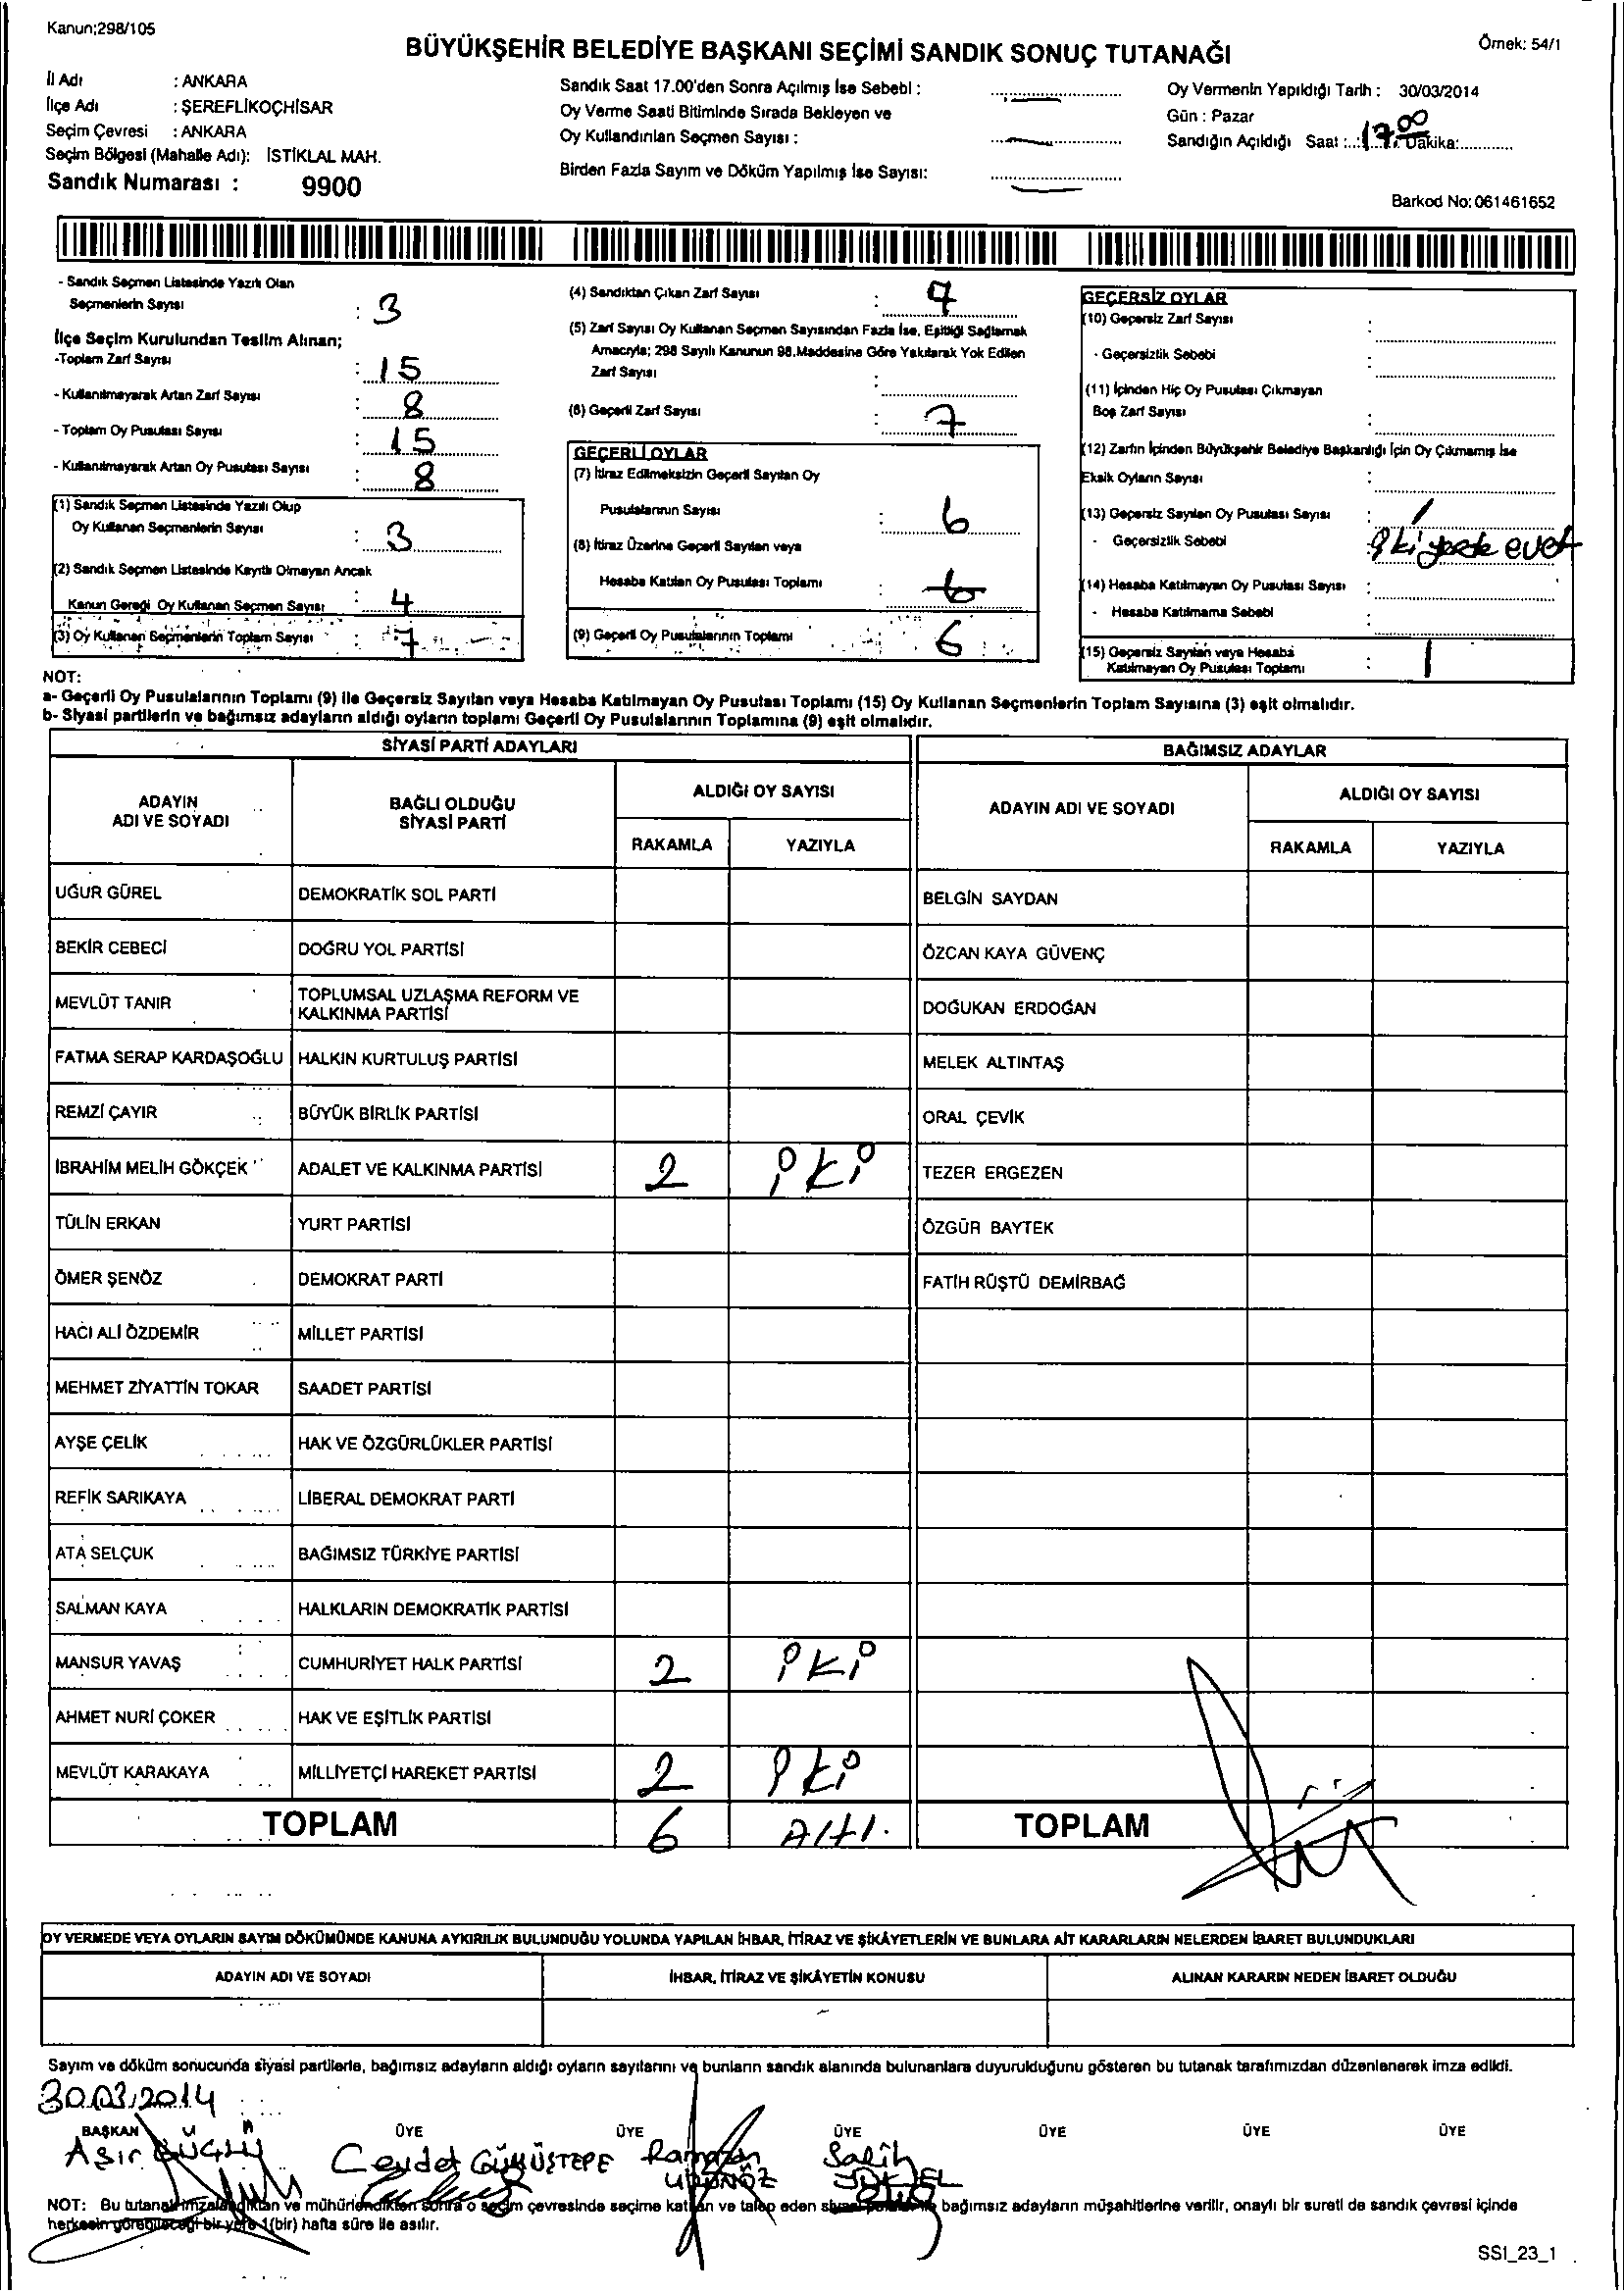 Kanun;298/105
BÜYÜKŞEHİR BELEDİYE BAŞKANI SEÇİMİ SANDIK SONUÇ TUTANAĞI
Örnek: 54/1
İl Adı : ANKARA
İlçe Adı : ŞEREFLİKOÇHİSAR
Seçim Çevresi : ANKARA
Seçim Bölgesi (Mahalle Adı): İSTİKLAL MAH.
Sandık Numarası : 9900
Sandık Saat 17.00'den Sonra Açılmış İse Sebebi :
Oy Verme Saati Bitiminde Sırada Bekleyen ve
Oy Kullandırılan Seçmen Sayısı :
Birden Fazla Sayım ve Döküm Yapılmış İse Sayısı:
Oy Vermenin Yapıldığı Tarih : 30/03/2014
Gün : Pazar
Sandığın Açıldığı Saat : 17.00 Dakika:
Barkod No: 061461652
- Sandık Seçmen Listesinde Yazılı Olan
Seçmenlerin Sayısı : 3
İlçe Seçim Kurulundan Teslim Alınan;
-Toplam Zarf Sayısı : 15
- Kullanılmayarak Artan Zarf Sayısı : 8
- Toplam Oy Pusulası Sayısı : 15
- Kullanılmayarak Artan Oy Pusulası Sayısı : 8
(1) Sandık Seçmen Listesinde Yazılı Olup
Oy Kullanan Seçmenlerin Sayısı : 3
(2) Sandık Seçmen Listesinde Kayıtlı Olmayan Ancak
Kanun Gereği Oy Kullanan Seçmen Sayısı : 4
(3) Oy Kullanan Seçmenlerin Toplam Sayısı : 7
(4) Sandıktan Çıkan Zarf Sayısı : 7
(5) Zarf Sayısı Oy Kullanan Seçmen Sayısından Fazla İse, Eşitliği Sağlamak
Amacıyla; 298 Sayılı Kanunun 98.Maddesine Göre Yakılarak Yok Edilen
Zarf Sayısı :
(6) Geçerli Zarf Sayısı : 7
GEÇERLİ OYLAR
(7) İtiraz Edilmeksizin Geçerli Sayılan Oy
Pusulalarının Sayısı : 6
(8) İtiraz Üzerine Geçerli Sayılan veya
Hesaba Katılan Oy Pusulası Toplamı : 6
(9) Geçerli Oy Pusulalarının Toplamı : 6
GEÇERSİZ OYLAR
(10) Geçersiz Zarf Sayısı :
- Geçersizlik Sebebi :
(11) İçinden Hiç Oy Pusulası Çıkmayan
Boş Zarf Sayısı :
(12) Zarfın İçinden Büyükşehir Belediye Başkanlığı İçin Oy Çıkmamış İse
Eksik Oyların Sayısı :
(13) Geçersiz Sayılan Oy Pusulası Sayısı : 1
- Geçersizlik Sebebi : iki yerde evet
(14) Hesaba Katılmayan Oy Pusulası Sayısı :
- Hesaba Katılmama Sebebi :
(15) Geçersiz Sayılan veya Hesaba
Katılmayan Oy Pusulası Toplamı : 1
NOT:
a- Geçerli Oy Pusulalarının Toplamı (9) ile Geçersiz Sayılan veya Hesaba Katılmayan Oy Pusulası Toplamı (15) Oy Kullanan Seçmenlerin Toplam Sayısına (3) eşit olmalıdır.
b- Siyasi partilerin ve bağımsız adayların aldığı oyların toplamı Geçerli Oy Pusulalarının Toplamına (9) eşit olmalıdır.
SİYASİ PARTİ ADAYLARI
ADAYIN ADI VE SOYADI BAĞLI OLDUĞU SİYASİ PARTİ ALDIĞI OY SAYISI
RAKAMLA YAZIYLA
UĞUR GÜREL DEMOKRATİK SOL PARTİ
BEKİR CEBECİ DOĞRU YOL PARTİSİ
MEVLÜT TANIR TOPLUMSAL UZLAŞMA REFORM VE KALKINMA PARTİSİ
FATMA SERAP KARDAŞOĞLU HALKIN KURTULUŞ PARTİSİ
REMZİ ÇAYIR BÜYÜK BİRLİK PARTİSİ
İBRAHİM MELİH GÖKÇEK ADALET VE KALKINMA PARTİSİ 2 iki
TÜLİN ERKAN YURT PARTİSİ
ÖMER ŞENÖZ DEMOKRAT PARTİ
HACI ALİ ÖZDEMİR MİLLET PARTİSİ
MEHMET ZİYATTİN TOKAR SAADET PARTİSİ
AYŞE ÇELİK HAK VE ÖZGÜRLÜKLER PARTİSİ
REFİK SARIKAYA LİBERAL DEMOKRAT PARTİ
ATA SELÇUK BAĞIMSIZ TÜRKİYE PARTİSİ
SALMAN KAYA HALKLARIN DEMOKRATİK PARTİSİ
MANSUR YAVAŞ CUMHURİYET HALK PARTİSİ 2 iki
AHMET NURİ ÇOKER HAK VE EŞİTLİK PARTİSİ
MEVLÜT KARAKAYA MİLLİYETÇİ HAREKET PARTİSİ 2 iki
TOPLAM 6 Altı.
BAĞIMSIZ ADAYLAR
ADAYIN ADI VE SOYADI ALDIĞI OY SAYISI
RAKAMLA YAZIYLA
BELGİN SAYDAN
ÖZCAN KAYA GÜVENÇ
DOĞUKAN ERDOĞAN
MELEK ALTINTAŞ
ORAL ÇEVİK
TEZER ERGEZEN
ÖZGÜR BAYTEK
FATİH RÜŞTÜ DEMİRBAĞ
TOPLAM
OY VERMEDE VEYA OYLARIN SAYIM DÖKÜMÜNDE KANUNA AYKIRILIK BULUNDUĞU YOLUNDA YAPILAN İHBAR, İTİRAZ VE ŞİKÂYETLERİN VE BUNLARA AİT KARARLARIN NELERDEN İBARET BULUNDUKLARI
ADAYIN ADI VE SOYADI İHBAR, İTİRAZ VE ŞİKÂYETİN KONUSU ALINAN KARARIN NEDEN İBARET OLDUĞU
Sayım ve döküm sonucunda siyasi partilerle, bağımsız adayların aldığı oyların sayılarını ve bunların sandık alanında bulunanlara duyurulduğunu gösteren bu tutanak tarafımızdan düzenlenerek imza edildi.
30.03.2014
BAŞKAN ÜYE ÜYE ÜYE ÜYE ÜYE ÜYE
Aşır GÜÇLÜ Cevdet GÜMÜŞTEPE Ramazan Salih
NOT: Bu tutanak imzalandıktan ve mühürlendikten sonra o seçim çevresinde seçime katılan ve talep eden siyasi partilerle bağımsız adayların müşahitlerine verilir, onaylı bir sureti de sandık çevresi içinde
herkesin görebileceği bir yere 1(bir) hafta süre ile asılır.
SSI_23_1